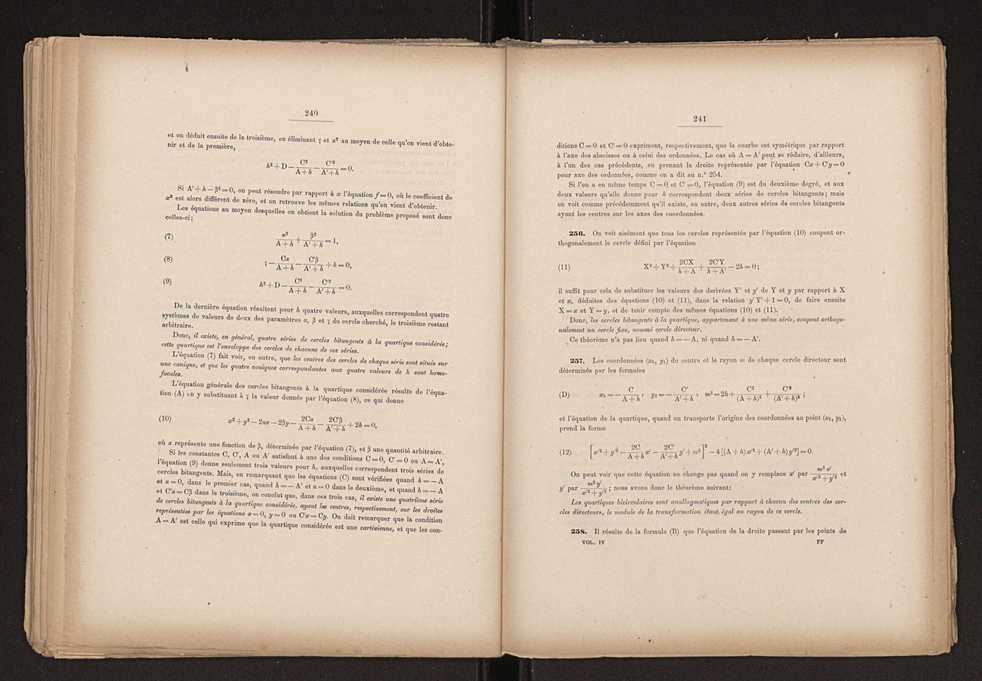 240
et on déduit ensuite de la troisième, en éliminant γ et α² au moyen de celle qu'on vient d'obte-
nir et de la première,
h² + D − C²/(A + h) − C'²/(A' + h) = 0.
Si A' + h − β² = 0, on peut résoudre par rapport à α l'équation f = 0, où le coefficient de
α² est alors différent de zéro, et on retrouve les mêmes relations qu'on vient d'obtenir.
Les équations au moyen desquelles on obtient la solution du problème proposé sont donc
celles-ci:
(7) α²/(A + h) + β²/(A' + h) = 1,
(8) γ − Cα/(A + h) − C'β/(A' + h) + h = 0,
(9) h² + D − C²/(A + h) − C'²/(A' + h) = 0.
De la dernière équation résultent pour h quatre valeurs, auxquelles correspondent quatre
systèmes de valeurs de deux des paramètres α, β et γ du cercle cherché, le troisième restant
arbitraire.
Donc, il existe, en général, quatre séries de cercles bitangents à la quartique considérée;
cette quartique est l'enveloppe des cercles de chacune de ces séries.
L'équation (7) fait voir, en outre, que les centres des cercles de chaque série sont situés sur
une conique, et que les quatre coniques correspondantes aux quatre valeurs de h sont homo-
focales.
L'équation générale des cercles bitangents à la quartique considérée résulte de l'équa-
tion (A) en y substituant à γ la valeur donnée par l'équation (8), ce qui donne
(10) x² + y² − 2αx − 2βy − 2Cα/(A + h) − 2C'β/(A' + h) + 2h = 0,
où α représente une fonction de β, déterminée par l'équation (7), et β une quantité arbitraire.
Si les constantes C, C', A ou A' satisfont à une des conditions C = 0, C' = 0 ou A = A',
l'équation (9) donne seulement trois valeurs pour h, auxquelles correspondent trois séries de
cercles bitangents. Mais, en remarquant que les équations (C) sont vérifiées quand h = − A
et α = 0, dans le premier cas, quand h = − A' et α = 0 dans le deuxième, et quand h = − A
et C'α = Cβ dans le troisième, on conclut que, dans ces trois cas, il existe une quatrième série
de cercles bitangents à la quartique considérée, ayant les centres, respectivement, sur les droites
représentées par les équations x = 0, y = 0 ou C'x = Cy. On doit remarquer que la condition
A = A' est celle qui exprime que la quartique considérée est une cartésienne, et que les con-
241
ditions C = 0 et C' = 0 expriment, respectivement, que la courbe est symétrique par rapport
à l'axe des abscisses ou à celui des ordonnées. Le cas où A = A' peut se réduire, d'ailleurs,
à l'un des cas précédents, en prenant la droite représentée par l'équation Cx + C'y = 0
pour axe des ordonnées, comme on a dit au n.º 254.
Si l'on a en même temps C = 0 et C' = 0, l'équation (9) est du deuxième degré, et aux
deux valeurs qu'elle donne pour h correspondent deux séries de cercles bitangents; mais
on voit comme précédemment qu'il existe, en outre, deux autres séries de cercles bitangents
ayant les centres sur les axes des coordonnées.
256. On voit aisément que tous les cercles représentés par l'équation (10) coupent or-
thogonalement le cercle défini par l'équation
(11) X² + Y² + 2CX/(h + A) + 2C'Y/(h + A') − 2h = 0;
il suffit pour cela de substituer les valeurs des derivées Y' et y' de Y et y par rapport à X
et x, déduites des équations (10) et (11), dans la relation y' Y' + 1 = 0, de faire ensuite
X = x et Y = y, et de tenir compte des mêmes équations (10) et (11).
Donc, les cercles bitangents à la quartique, appartenant à une même série, coupent orthogo-
nalement un cercle fixe, nommé cercle directeur.
Ce théorème n'a pas lieu quand h = − A, ni quand h = − A'.
257. Les coordonnées (x₁, y₁) du centre et le rayon ω de chaque cercle directeur sont
déterminés par les formules
(D) x₁ = − C/(A + h), y₁ = − C'/(A' + h), ω² = 2h + C²/(A + h)² + C'²/(A' + h)²;
et l'équation de la quartique, quand on transporte l'origine des coordonnées au point (x₁, y₁),
prend la forme
(12) [x'² + y'² − 2C/(A + h) x' − 2C'/(A' + h) y' + ω²]² − 4 [(A + h) x'² + (A' + h) y'²] = 0.
On peut voir que cette équation ne change pas quand on y remplace x' par ω² x'/(x'² + y'²) et
y' par ω² y'/(x'² + y'²); nous avons donc le théorème suivant:
Les quartiques bicirculaires sont anallagmatiques par rapport à chacun des centres des cer-
cles directeurs, le module de la transformation étant égal au rayon de ce cercle.
258. Il résulte de la formule (B) que l'équation de la droite passant par les points de
VOL. IV FF